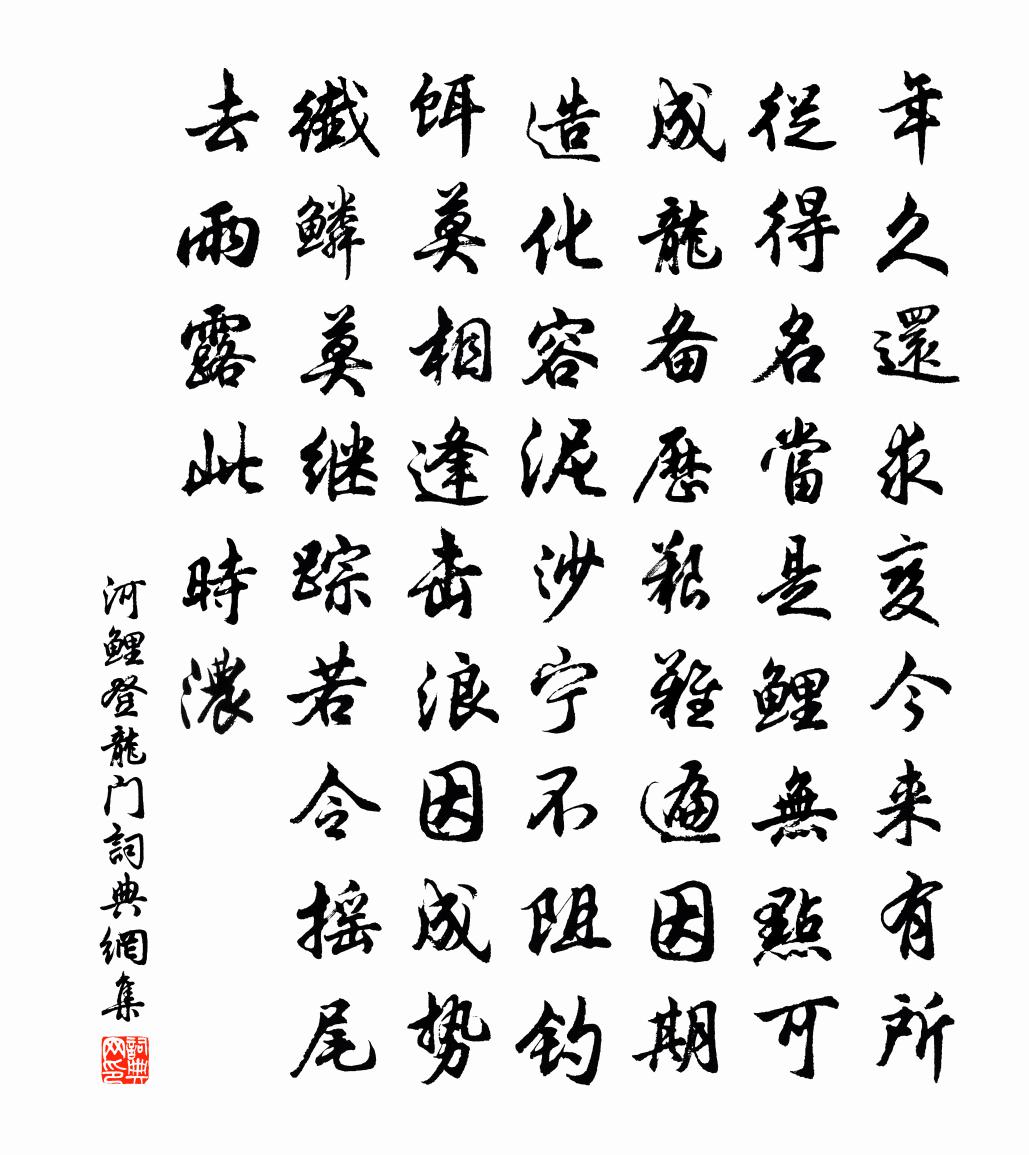 年久還求变今来有所
從得名當是鯉無點可
成龍备歷艱難遍因期
造化容泥沙宁不阻钓
饵莫相逢击浪因成势
纖鱗莫继踪若令摇尾
去雨露此時濃
河鯉登龍门詞典網集
詞典网印